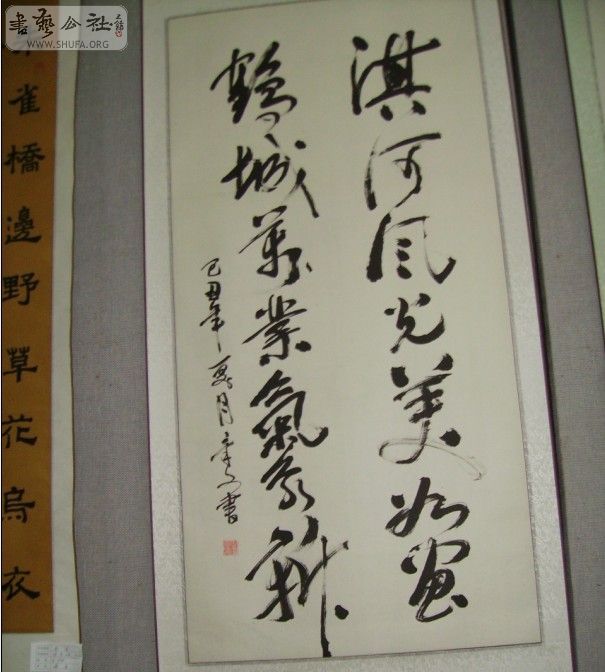 淇河風光美如画
鶴城萬業氣象新
己丑年夏月
書
雀橋邊野草花烏衣
書藝公社
WWW.SHUFA.ORG